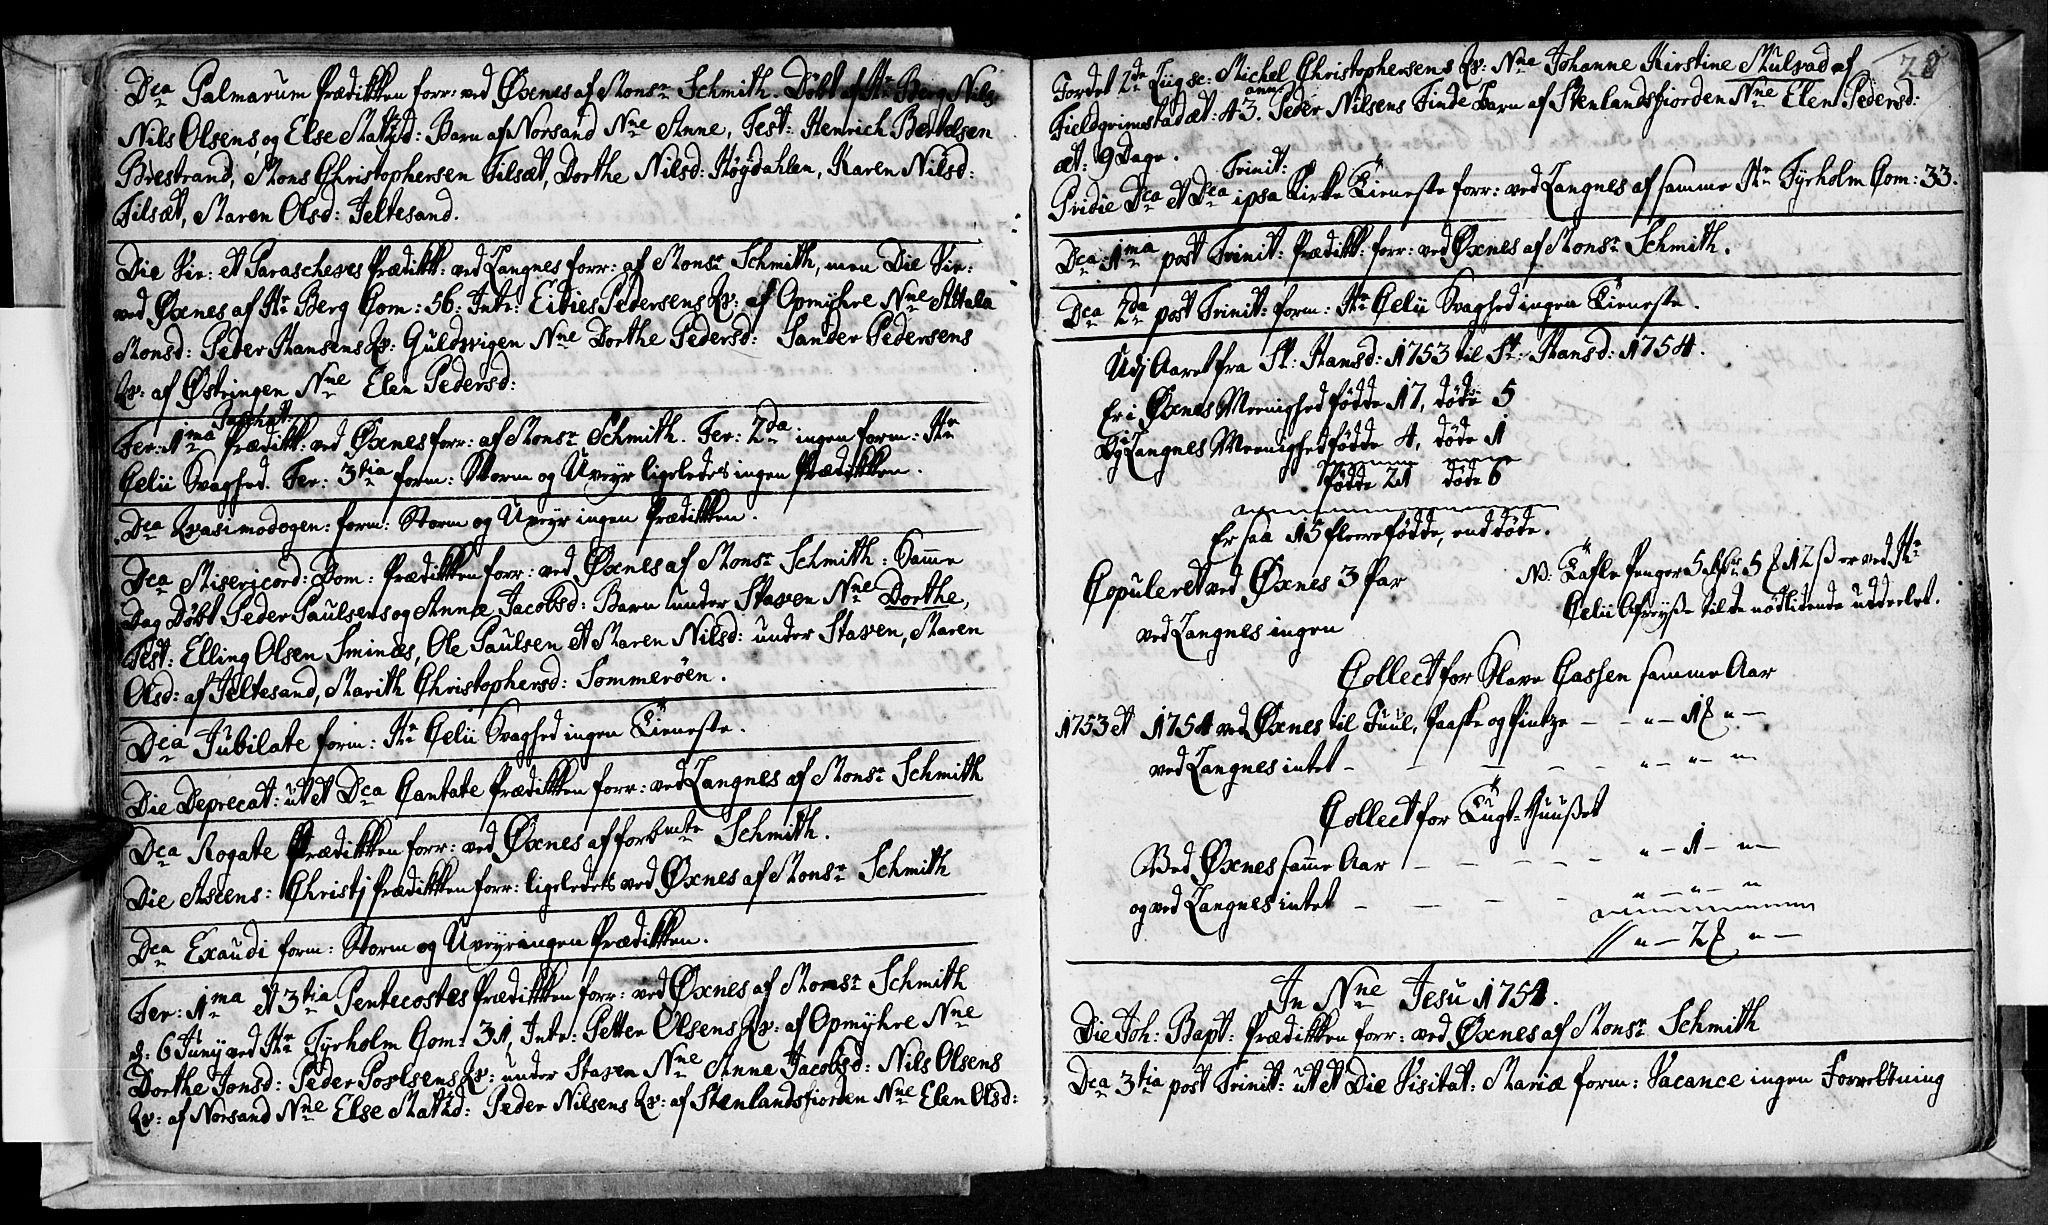 Dca Palmarum Prædikken forr: ved Øxnes af Monsr Schmith. Döbt af Hr Berg Nils
Nils Olsens og Else Matzd: Barn af Norsand Nne Anne, Test: Henrich Bertelsen
Brestrand, Mons Christophersen Tilsæt, Dorthe Nilsd: Høydahlen, Karen Nilsd:
Tilsæt, Maren Olsd: Jeltesand.
Die Vir: et Parascheves Prædikk: ved Langnes forr: af Monsr Schmith, men Die Vir:
ved Øxnes af Hr Berg Com: 56. Intr: Eities Pedersens Qv: af Opmyhre Nne Attala
Monsd: Peder Hansens Qv: Guldvigen Nne Dorthe Pedersd: Sander Pedersens
Qv: af Østringen Nne Elen Pedersd:
Paschat:
Fer: 1ma Prædikk: ved Øxnes forr: af Monsr Schmith. Fer: 2da ingen form: Hr
Celii Svaghed. Fer: 3tia form: Storm og Uveyr ligeledes ingen Prædikken.
Dca Qvasimodogen: form: Storm og Uveyr ingen Prædikken.
Dca Misericord: Dom: Prædikken forr: ved Øxnes af Monsr Schmith: Samme
Dag Döbt Peder Paulsens og Anna Jacobsd: Barn under Staven Nne Dorthe,
Test: Elling Olsen Sminæs, Ole Paulsen et Maren Nilsd: under Staven, Maren
Olsd: af Jeltesand, Marith Christophersd: Sommerøen.
Dca Jubilate form: Hr Celii Svaghed ingen Tieneste.
Die Deprecat: ut et Dca Cantate Prædikken forr: ved Langnes af Monsr Schmith
Dca Rogate Prædikken forr: ved Øxnes af forbmte Schmith.
Die Ascens: Christj Prædikken forr: ligeledes ved Øxnes af Monsr Schmith
Dca Exaudi form: Storm og Uveyr ingen Prædikken.
Fer: 1ma et 3tia Pentecostes Prædikken forr: ved Øxnes af Monsr Schmith
d: 6 Juny ved Hr Tyrholm Com: 31, Intr: Petter Olsens Qv: af Opmyhre Nne
Dorthe Jonsd: Peder Povlsens Qv: under Staven Nne Anne Jacobsd: Nils Olsens
Qv: af Norsand Nne Else Matzd: Peder Nilsens Qv: af Stenlandsfiorden Nne Elen Olsd:
28
Jordet 2de Liig sc: Michel Christophersens Qv: Nne Johanne Kirstine Mulvad af
Fieldgrimstad æt: 43. Peder Nilsens Finde Barn af Stenlandsfiorden Nne Elen Pedersd:
æt: 9 Dage.
Trinit:
Pridie Dca et Dca ipsa Kirke Tieneste forr: ved Langnes af samme Hr Tyrholm Com: 33.
Dca 1ma post Trinit: Prædikk: forr: ved Øxnes af Monsr Schmith.
Dca 2da post Trinit: form: Hr Celii Svaghed ingen Tieneste.
Udj Aaret fra St: Hansd: 1753 til St: Hansd: 1754.
Er i Øxnes Meenighed fødde 17, döde 5
Og i Langnes Meenighed fødde 4, döde 1
Fødde 21 döde 6
Er saa 15 fleere fødde, end döde.
Copuleret ved Øxnes 3 Par
ved Langnes ingen
NB: Tafle Penger 5 5 12 ß er ved Hr
Celii til de nödlidende uddeelet.
Collect for Slave Cassen samme Aar
1753 et 1754 ved Øxnes til Juul, Paaske og Pintze — — „ — 1 „ —
ved Langnes intet — — — — — „ — „ — „
Collect for Tugt-Huuset
Ved Øxnes samme Aar — — — — — „ — 1 — „ —
og ved Langnes intet — — — — „ — „ — „
„ — 2 „ —
In Nne Jesu 1754.
Die Joh: Bapt: Prædikken forr: ved Øxnes af Monsr Schmith
Dca 3tia post Trinit: ut et Die Visitat: Mariæ form: Vacance ingen Forretning